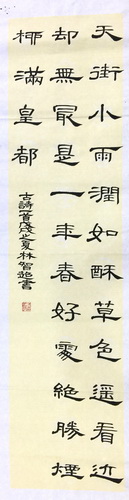 天街小雨潤如酥草色遙看近
却無最是一年春好處絕勝煙
柳滿皇都
古詩首夏林智超書